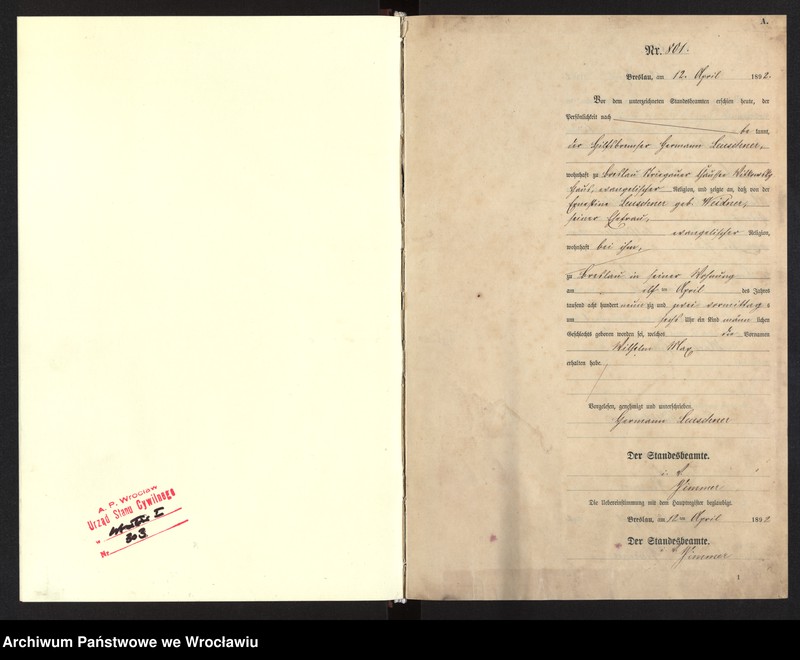 A. P. Wrocław
Urząd Stanu Cywilnego
" Wrocław I
Nr. 303
A.
Nr. 801.
Breslau, am 12. April 1892.
Vor dem unterzeichneten Standesbeamten erschien heute, der
Persönlichkeit nach
be kannt,
der Hilfsbremser Hermann Leuschner,
wohnhaft zu Breslau Striegauer Chaussee
Haus, evangelischer Religion, und zeigte an, daß von der
Ernestine Leuschner geb. Weidner,
seiner Ehefrau,
evangelischer Religion,
wohnhaft bei ihm,
zu Breslau in seiner Wohnung
am elften April des Jahres
tausend acht hundert neun zig und zwei vormittag s
um sechs Uhr ein Kind männ lichen
Geschlechts geboren worden sei, welches die Vornamen
Wilhelm Max
erhalten habe.
Vorgelesen, genehmigt und unterschrieben
Hermann Leuschner
Der Standesbeamte.
Zimmer
Die Uebereinstimmung mit dem Hauptregister beglaubigt.
Breslau, am 12ten April 1892.
Der Standesbeamte.
Zimmer
1
Archiwum Państwowe we Wrocławiu